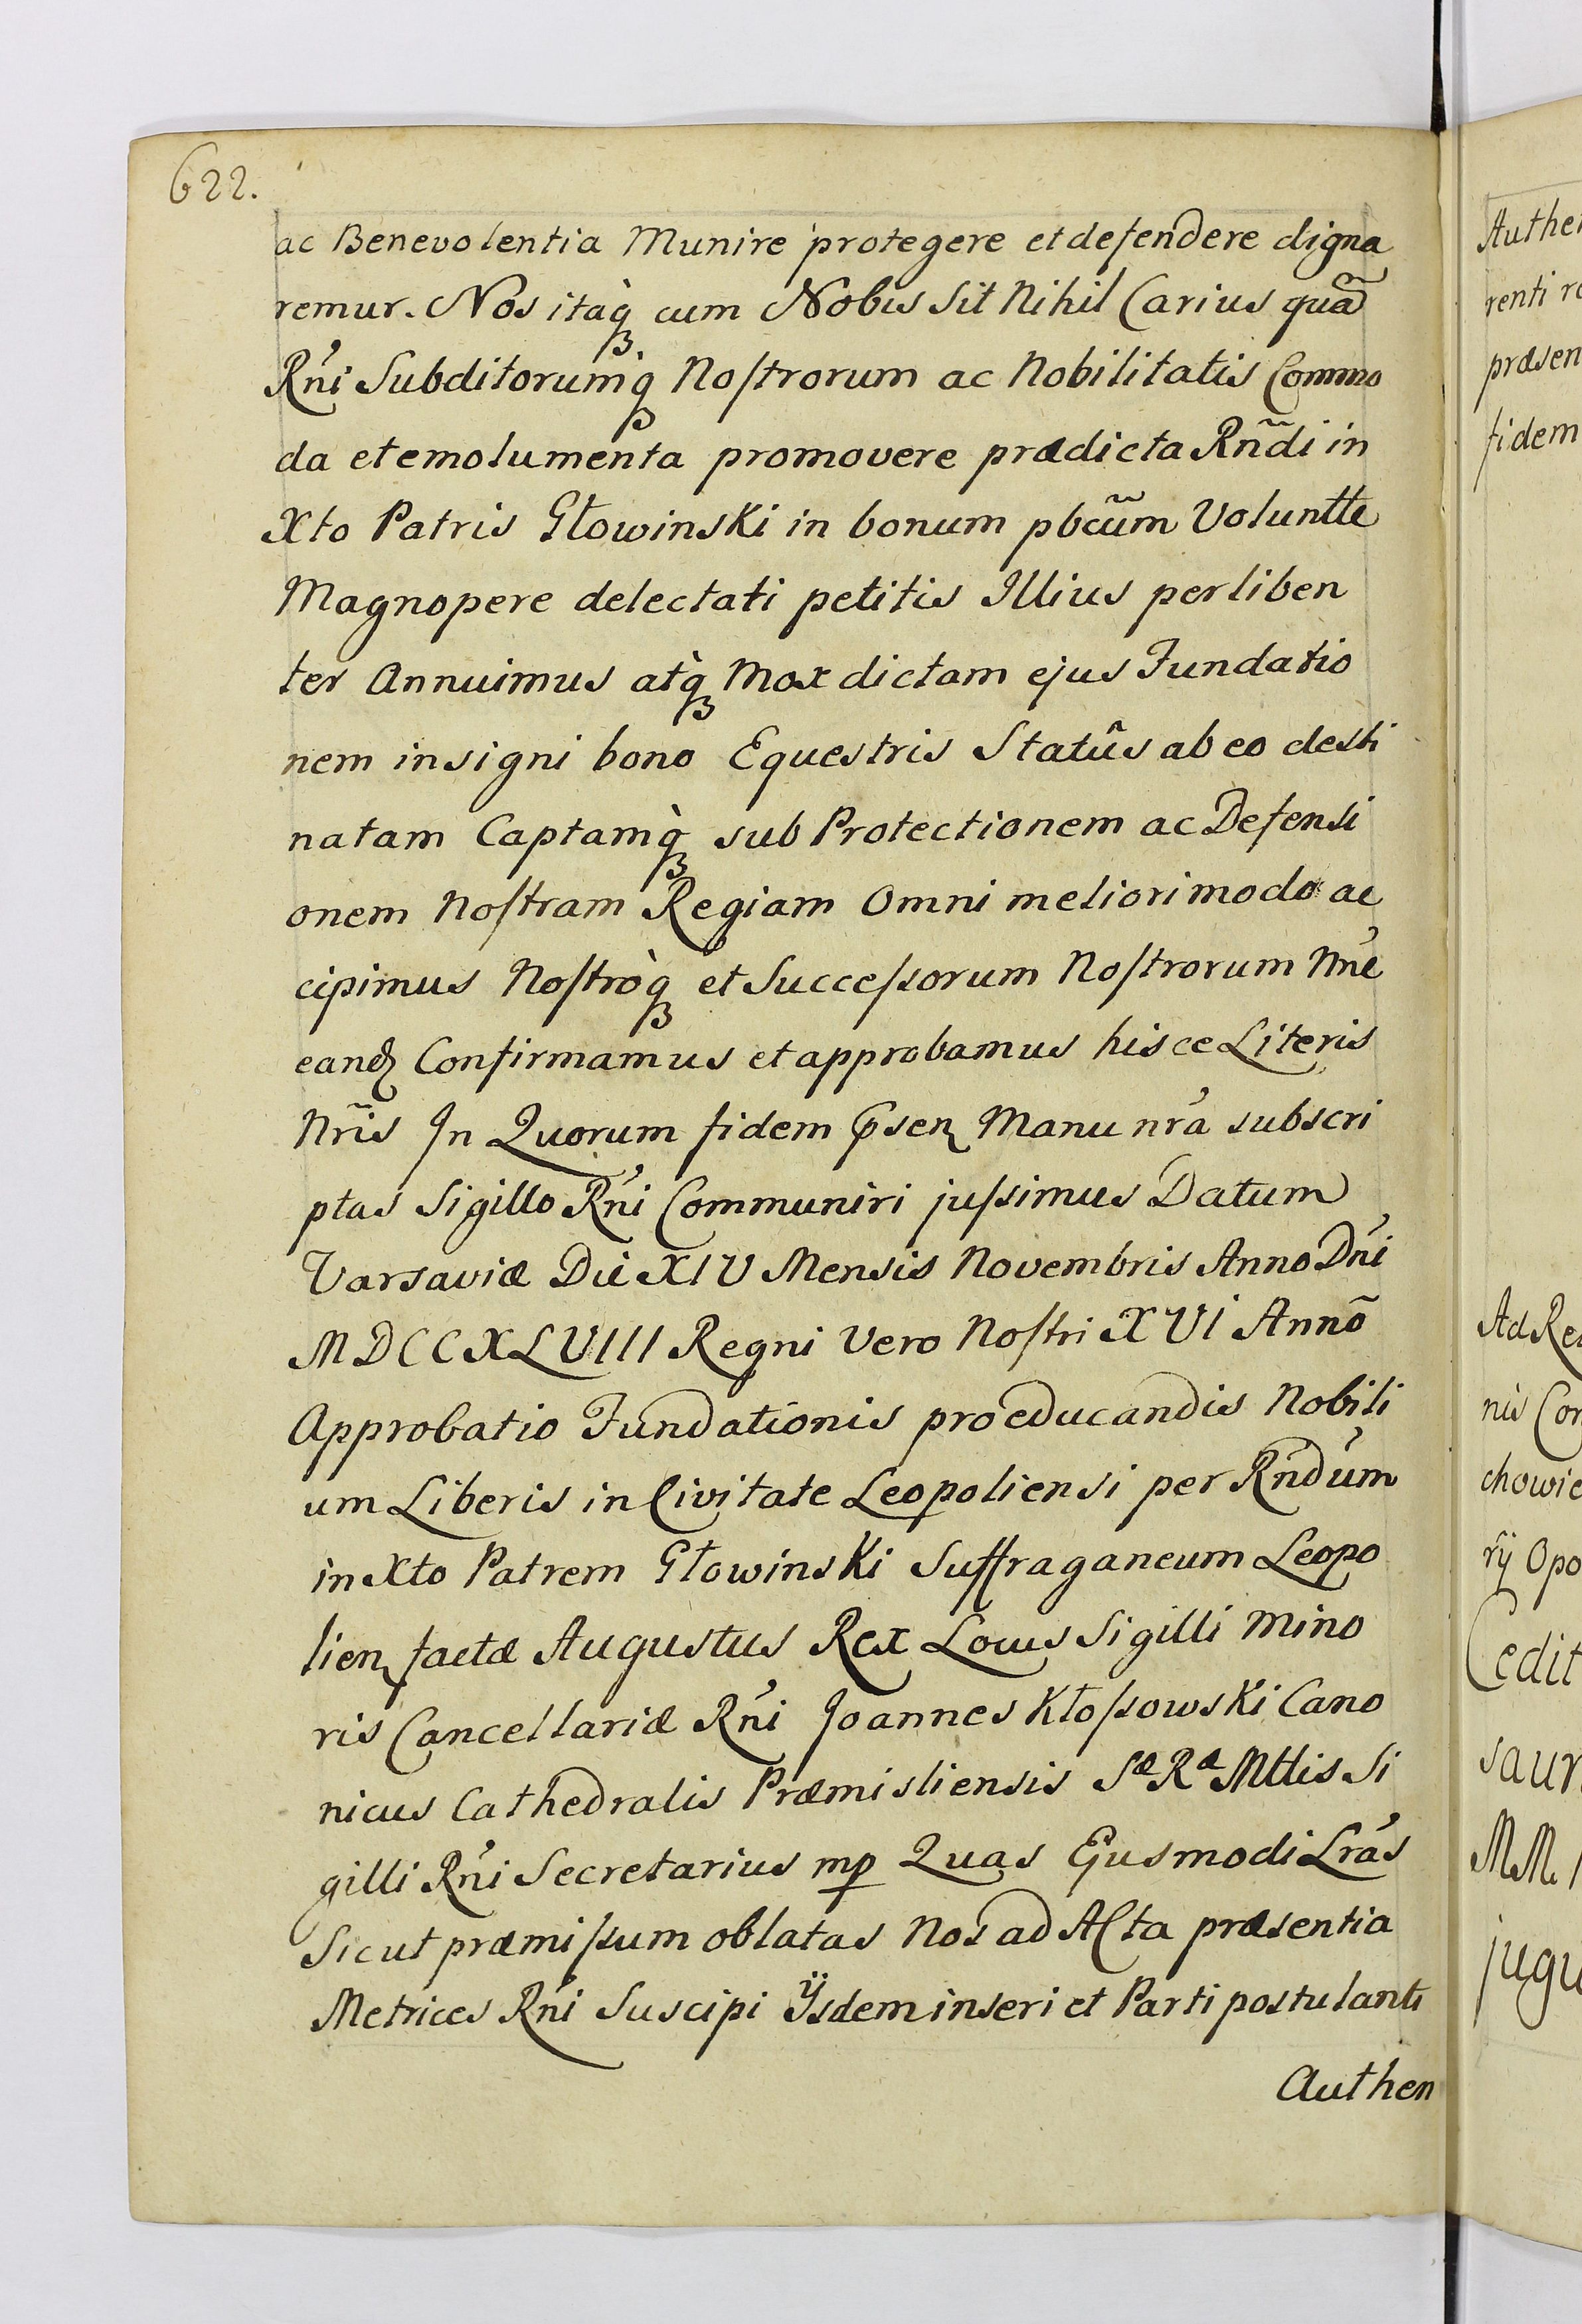 622.
ac Benevolentia Munire protegere et defendere digna
remur. Nos itaq̀ꝫ cum Nobis Sit Nihil Carius quam̃
Rńi Subditorumq̀ꝫ Noſtrorum ac Nobilitatis Commo
da et emolumenta promovere prædicta Rñdi in
Xto Patris Głowinski in bonum pbcũm Voluntte
Magnopere delectati petitis Illius perliben
ter Annuimus atq̀ꝫ Mox dictam ejus Fundatio
nem insigni bono Equestris Statûs ab eo desti
natam Captamq̀ꝫ sub Protectionem ac Defensi
onem Noſtram Regiam Omni meliori modo ac
cipimus Noſtroq̀ꝫ et Succeſsorum Noſtrorum Nńe
eandꝫ Confirmamus et approbamus hisce Literis
Nr̃is In Quorum fidem p̃senꝫ Manu nŕa subscri
ptas Sigillo Rńi Communiri juſsimus Datum
Varsaviæ Die XIV Mensis Novembris Anno Dńi
MDCCXLVIII Regni Vero Noſtri XVI Annõ
Approbatio Fundationis pro educandis Nobili
um Liberis in Civitate Leopoliensi per Rńdum
in Xto Patrem Głowinski Suffraganeum Leopo
lienꝫ factæ Augustus Rex Locus Sigilli Mino
ris Cancellariæ Rńi Joannes Kłoſsowski Cano
nicus Cathedralis Præmisliensis Sæ Ræ Mttis Si
gilli Rńi Secretarius mp Quas Ejusmodi Lŕas
Sicut præmiſsum oblatas Nos ad Acta præsentia
Metrices Rńi Suscipi Ÿsdem inseri et Parti postulanti
Authen
Authen
renti ro
præsen
fidem
Ad Re
nis Con
chowie
rÿ Opo
Cedit
saur
MM
jugu